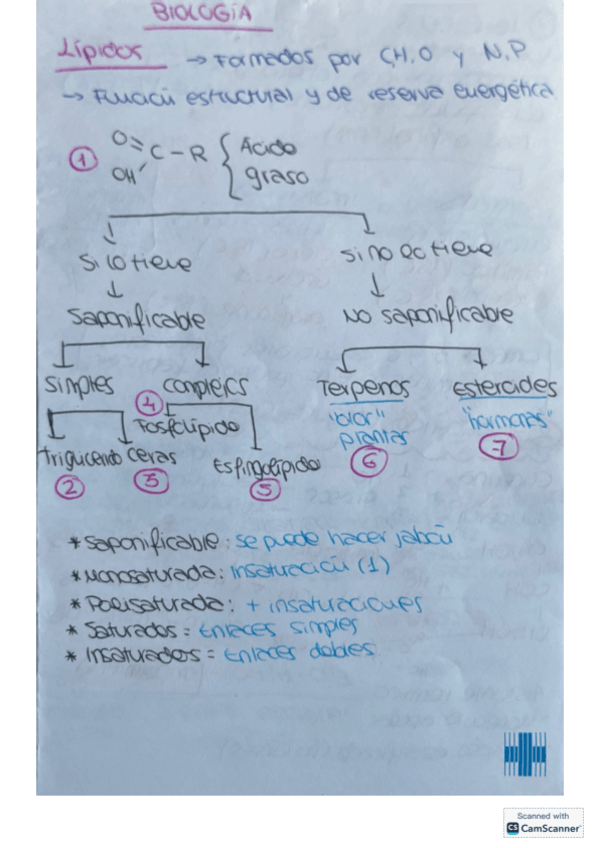 BIOLOGÍA
Lípidos → Formados por C,H,O y N,P
→ Función estructural y de reserva energética
① O=C-R { Ácido
OH graso
Si lo tiene si no lo tiene
↓ ↓
Saponificable No saponificable
simples complejos Terpenos esteroides
④ Fosfolípido "olor" "hormonas"
plantas
triglicérido ceras Esfingolípido ⑥ ⑦
② ③ ⑤
* saponificable: se puede hacer jabón
* Monosaturada: insaturación (1)
* Polisaturada: + insaturaciones
* Saturados = Enlaces simples
* Insaturados = Enlaces dobles
Scanned with
CS CamScanner